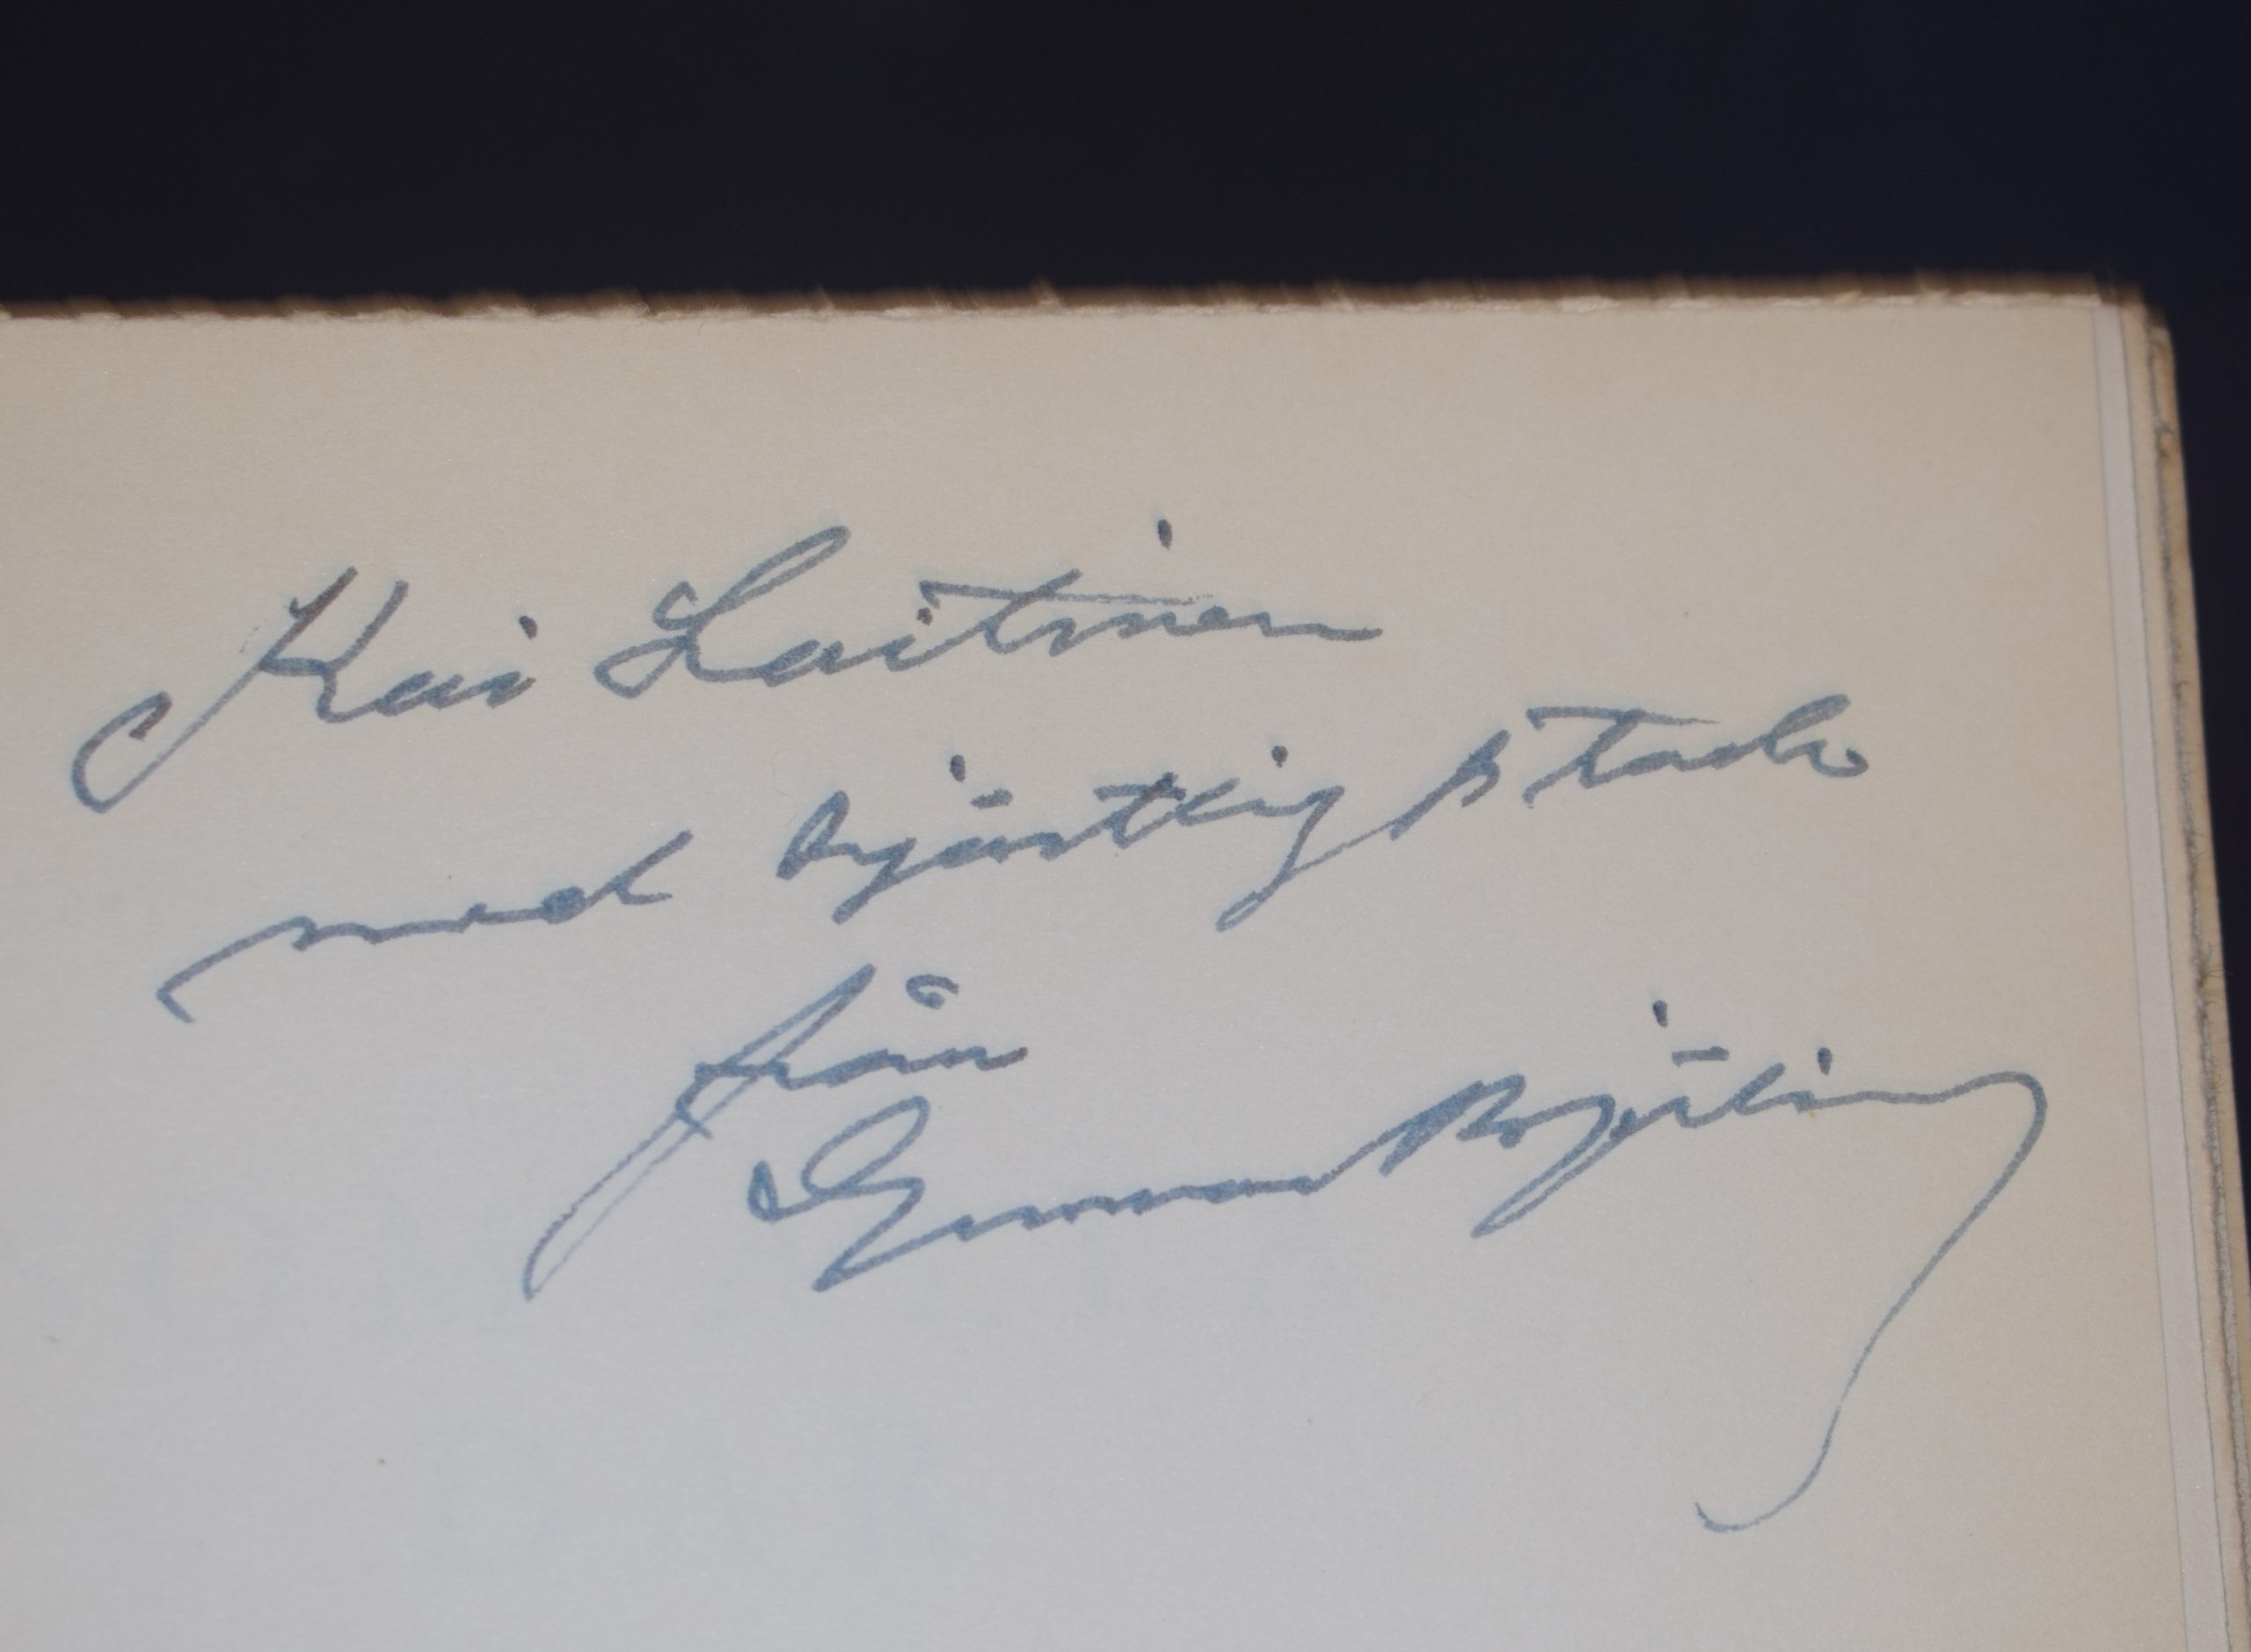 Kai Laitinen
med hjärtlig stack
från
Gunnar Björling